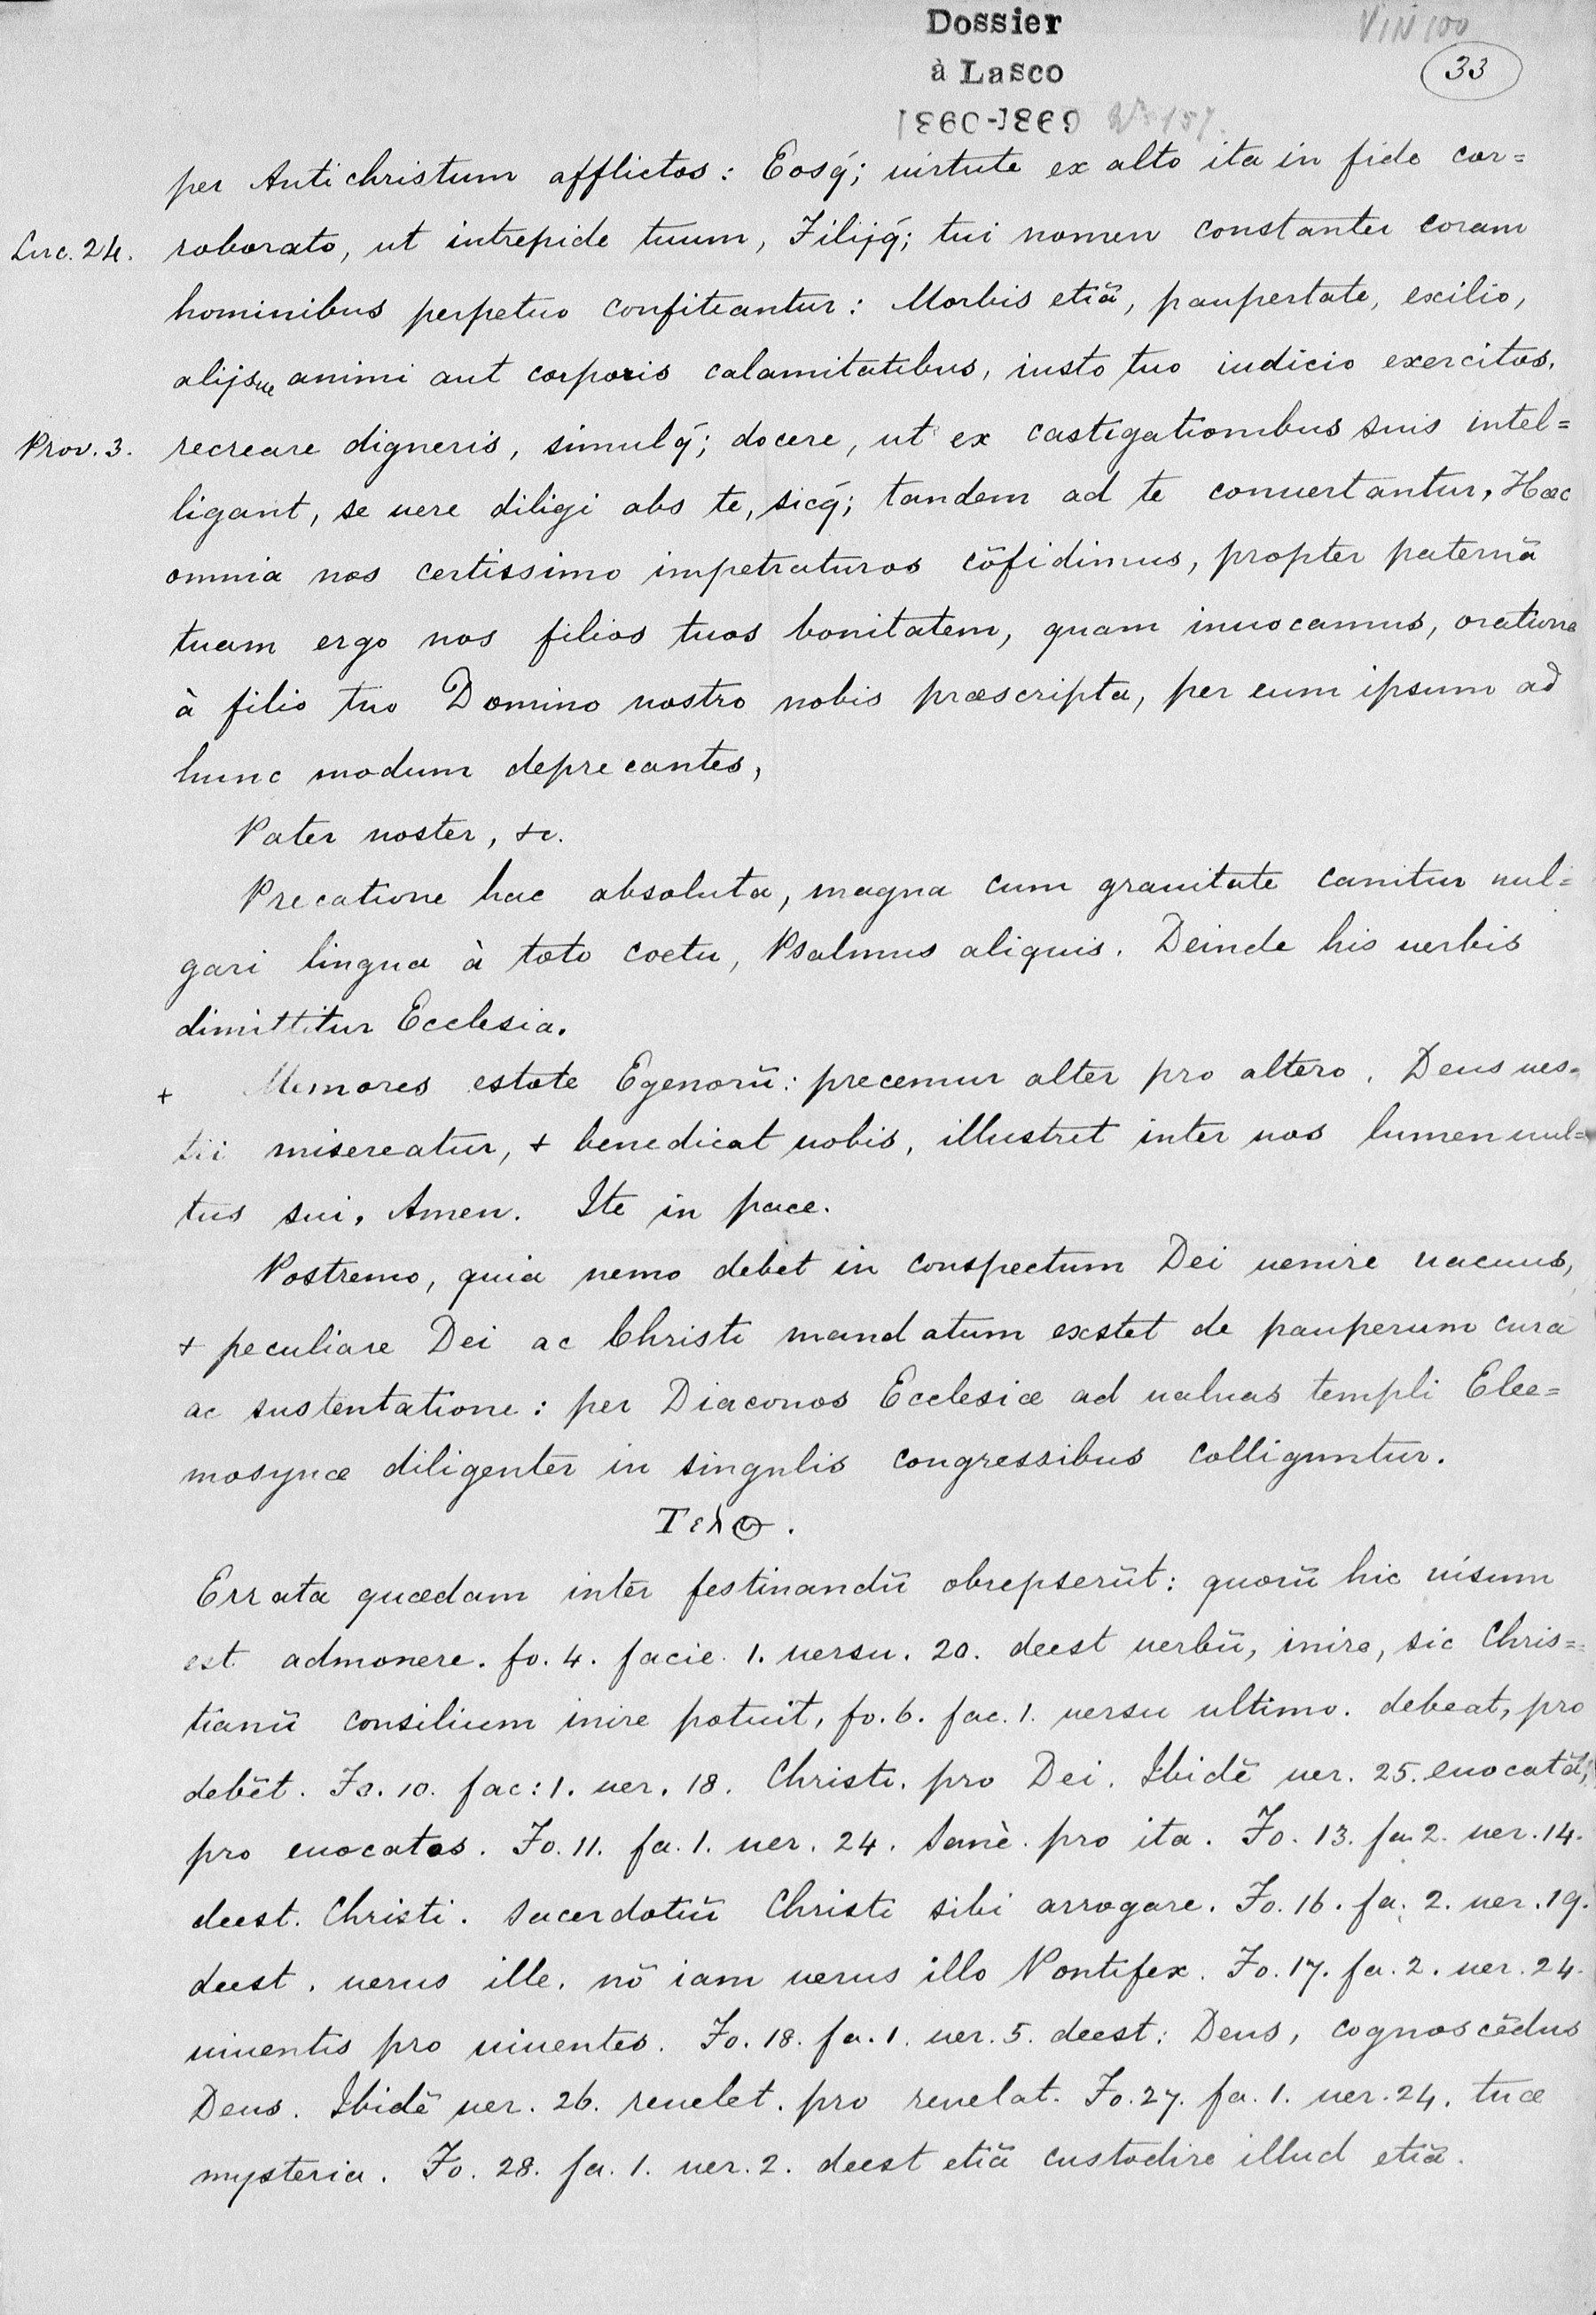 Dossier
à Lasco
1860-1869 No 157.
VIN 100
33
per Antichristum afflictos: Eosq́; uirtute ex alto ita in fide cor=
Luc. 24. roborato, ut intrepide tuum, Filijq́; tui nomen constanter coram
hominibus perpetuo confiteantur: Morbis etiã, paupertate, exilio,
alijsue animi aut corporis calamitatibus, iusto tuo iudicio exercitos,
Prov. 3. recreare digneris, simulq́; docere, ut ex castigationibus suis intel=
ligant, se uere diligi abs te, sicq́; tandem ad te conuertantur, Hæc
omnia nos certissimo impetraturos cõfidimus, propter paternã
tuam ergo nos filios tuos bonitatem, quam inuocamus, oratione
à filio tuo Domino nostro nobis præscripta, per eum ipsum ad
hunc modum deprecantes,
Pater noster, &c.
Precatione hac absoluta, magna cum grauitate canitur uul=
gari lingua à toto coetu, Psalmus aliquis. Deinde his uerbis
dimittitur Ecclesia.
+ Memores estote Egenorũ: precemur alter pro altero. Deus ues=
tri misereatur, & benedicat uobis, illustret inter uos lumen uul=
tus sui, Amen. Ite in pace.
Postremo, quia nemo debet in conspectum Dei uenire uacuus,
& peculiare Dei ac Christi mandatum exstet de pauperum cura
ac sustentatione: per Diaconos Ecclesiæ ad ualuas templi Elee=
mosynæ diligenter in singulis congressibus colliguntur.
Τελος.
Errata quædam inter festinandũ obrepserũt: quorũ hic uisum
est admonere. fo. 4. facie 1. uersu. 20. deest uerbũ, inire, sic Chris=
tianũ consilium inire potuit, fo. 6. fac. 1. uersu ultimo. debeat, pro
debẽt. Fo. 10. fac: 1. uer. 18. Christi. pro Dei. Ibidẽ uer. 25. euocatã,
pro euocatos. Fo. 11. fa. 1. uer. 24. Sanè pro ita. Fo. 13. fa. 2. uer. 14.
deest. Christi. sacerdotiũ Christi sibi arrogare. Fo. 16. fa. 2. uer. 19.
deest. uerus ille. nõ iam uerus ille Pontifex. Fo. 17. fa. 2. uer. 24.
uiuentis pro uiuentes. Fo. 18. fa. 1. uer. 5. deest: Deus, cognoscẽdus
Deus. Ibidẽ uer. 26. reuelet. pro reuelat. Fo. 27. fa. 1. uer. 24. tuæ
mysteria. Fo. 28. fa. 1. uer. 2. deest etiã custodire illud etiã.